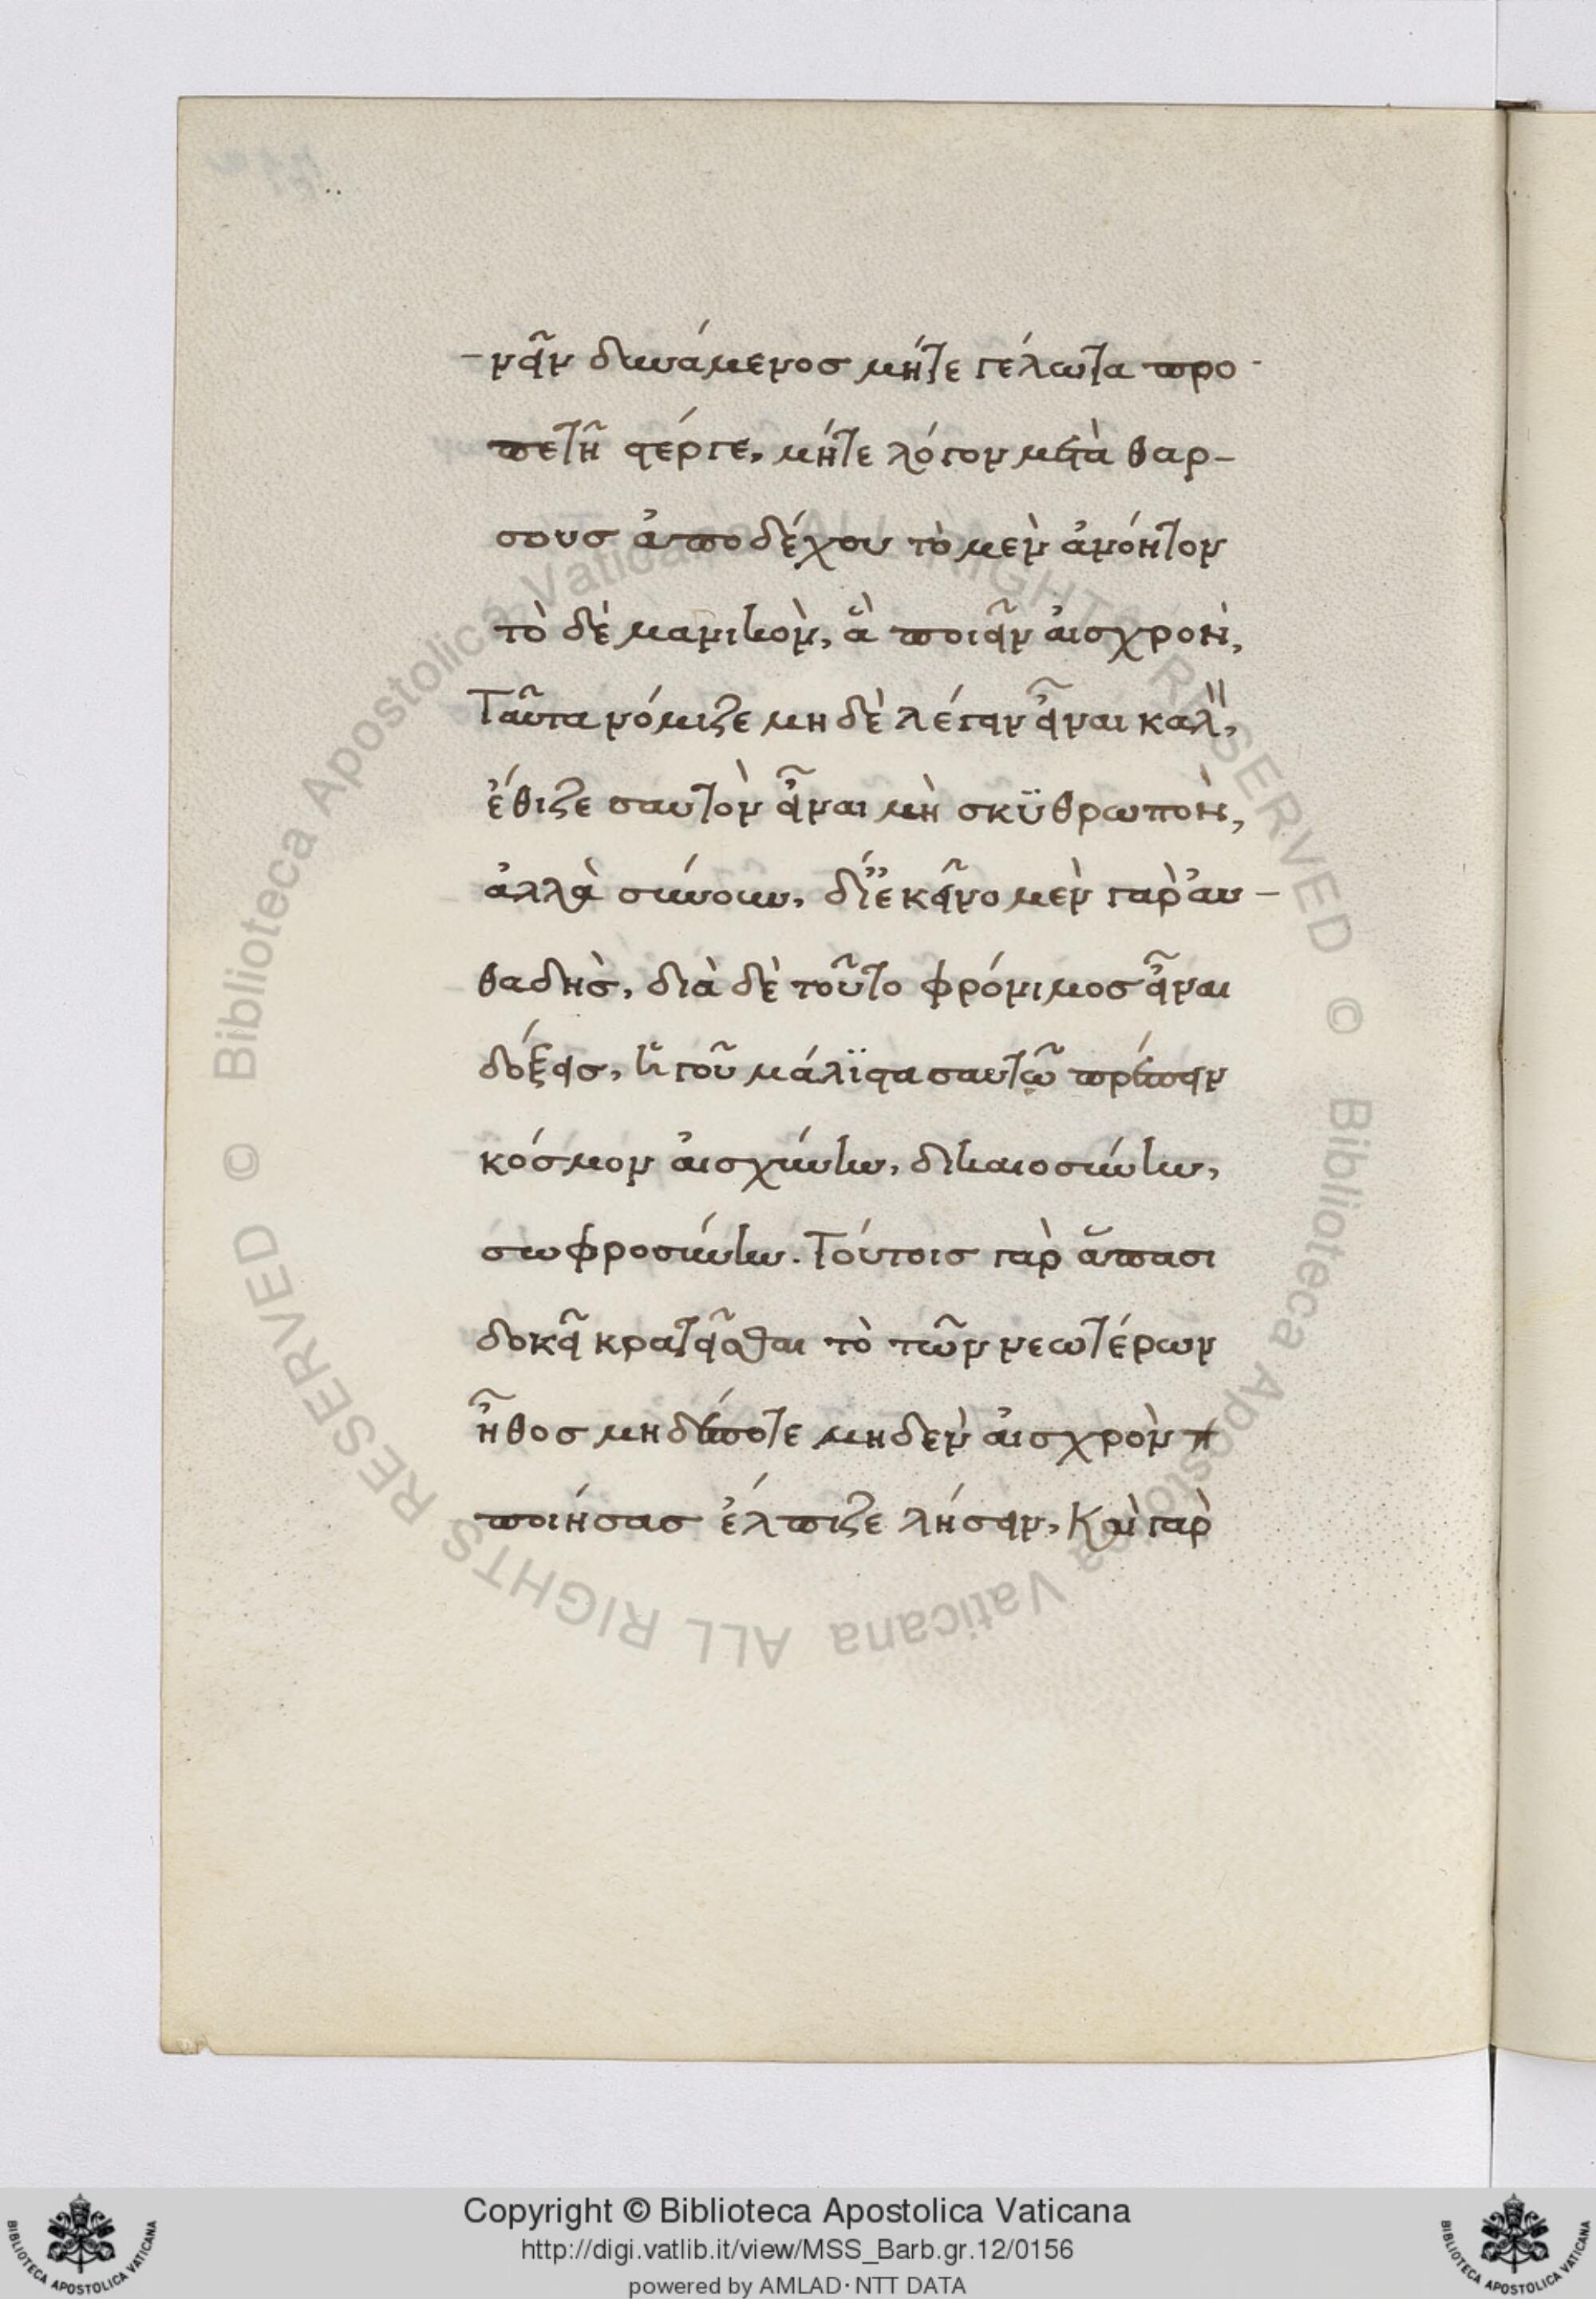 -νεῖν δυνάμενος μήτε γέλωτα προ-
πετῆ στέργε, μήτε λόγον μετὰ θαρ-
σους ἀποδέχου τὸ μὲν ἀνόητον
τὸ δὲ μανικὸν, ἃ ποιεῖν αἰσχρὸν,
Ταῦτα νόμιζε μηδὲ λέγειν εἶναι καλὸν,
ἔθιζε σαυτὸν εἶναι μὴ σκϋθρωπὸν,
ἀλλὰ σύνουν, δι' ἐκεῖνο μὲν γὰρ αὐ-
θαδὴς, διὰ δὲ τοῦτο φρόνιμος εἶναι
δόξεις, ἡγοῦ μάλϊστα σαυτῷ πρέπειν
κόσμον αἰσχύνην, δικαιοσύνην,
σωφροσύνην. Τούτοις γὰρ ἅπασι
δοκεῖ κρατεῖσθαι τὸ τῶν νεωτέρων
ἦθος μηδέποτε μηδὲν αἰσχρὸν π
ποιήσας ἔλπιζε λήσειν, Καὶ γὰρ
© Biblioteca Apostolica Vaticana ALL RIGHTS RESERVED
© Biblioteca Apostolica Vaticana ALL RIGHTS RESERVED
Copyright © Biblioteca Apostolica Vaticana
http://digi.vatlib.it/view/MSS_Barb.gr.12/0156
powered by AMLAD·NTT DATA
BIBLIOTECA APOSTOLICA VATICANA
BIBLIOTECA APOSTOLICA VATICANA